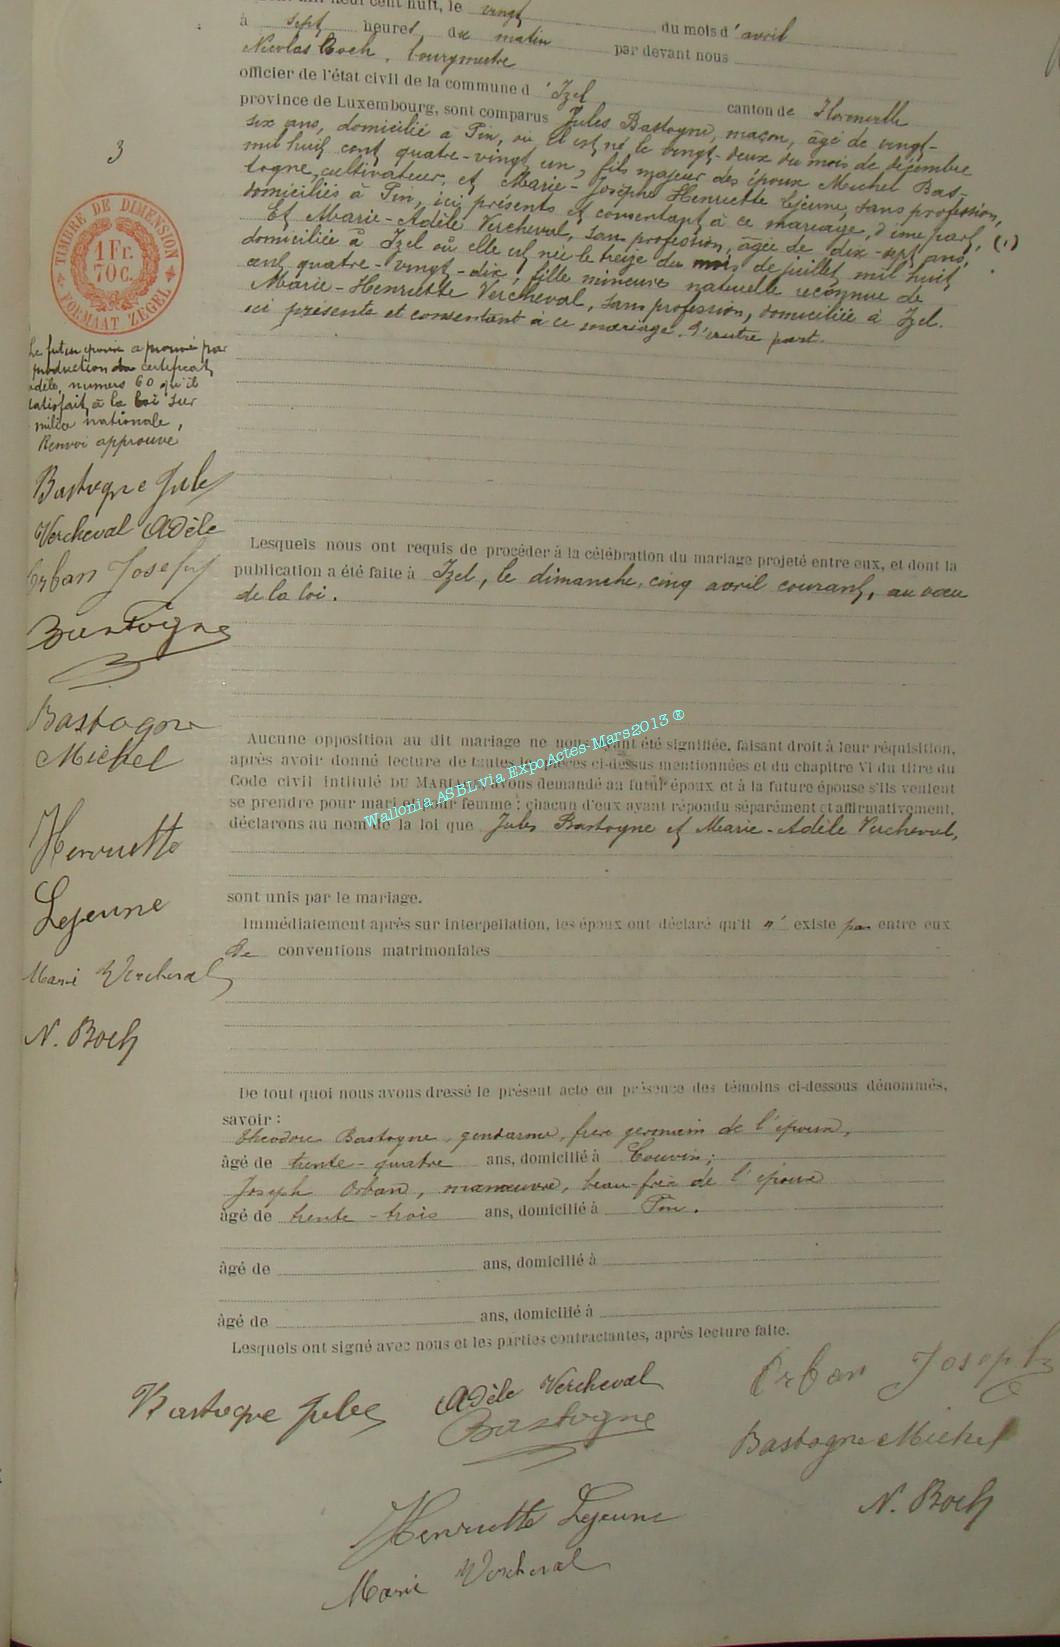 mil neuf cent huit, le vingt du mois d'avril
à sept heures du matin par devant nous
Nicolas Boch, bourgmestre
officier de l'état civil de la commune d'Izel canton de Florenville
province de Luxembourg, sont comparus Jules Bastogne, maçon, âgé de vingt-
six ans, domicilié à Pin, où il est né le vingt-deux du mois de décembre
mil huit cent quatre-vingt un, fils majeur des époux Michel Bas-
togne, cultivateur, et Marie-Josèphe Henriette Lejeune, sans profession,
domiciliés à Pin, ici présents et consentant à ce mariage, d'une part, (1)
Et Marie-Adèle Vercheval, sans profession, âgée de dix-sept ans,
domiciliée à Izel où elle est née le treize du mois de juillet mil huit
cent quatre-vingt-dix, fille mineure naturelle reconnue de
Marie-Henriette Vercheval, sans profession, domiciliée à Izel.
ici présente et consentant à ce mariage, d'autre part.
3
TIMBRE DE DIMENSION
1 Fr.
70 C.
FORMAAT ZEGEL
Le futur époux a prouvé par
production du certificat
modèle, numéro 60 qu'il
satisfait à la loi sur
milice nationale,
Renvoi approuvé
Bastogne Jules
Vercheval Adèle
Orban Joseph
Bastogne
Bastogne
Michel
Henriette
Lejeune
Marie Vercheval
N. Boch
Lesquels nous ont requis de procéder à la célébration du mariage projeté entre eux, et dont la
publication a été faite à Izel, le dimanche, cinq avril courant, au vœu
de la loi.
Aucune opposition au dit mariage ne nous ayant été signifiée, faisant droit à leur réquisition,
après avoir donné lecture de toutes les pièces ci-dessus mentionnées et du chapitre VI du titre du
Code civil intitulé DU MARIAGE, avons demandé au futur époux et à la future épouse s'ils veulent
se prendre pour mari et pour femme ; chacun d'eux ayant répondu séparément et affirmativement,
déclarons au nom de la loi que Jules Bastogne et Marie-Adèle Vercheval,
Wallonia ASBL via Expo Actes-Mars 2013 ®
sont unis par le mariage.
Immédiatement après sur interpellation, les époux ont déclaré qu'il n'existe pas entre eux
de conventions matrimoniales
De tout quoi nous avons dressé le présent acte en présence des témoins ci-dessous dénommés,
savoir :
Théodore Bastogne, gendarme, frère germain de l'époux,
âgé de trente-quatre ans, domicilié à Couvin;
Joseph Orban, manœuvre, beau-frère de l'époux
âgé de trente-trois ans, domicilié à Pin.
âgé de ans, domicilié à
âgé de ans, domicilié à
Lesquels ont signé avec nous et les parties contractantes, après lecture faite.
Bastogne Jules Adèle Vercheval Orban Joseph
Bastogne Bastogne Michel
Henriette Lejeune N. Boch
Marie Vercheval